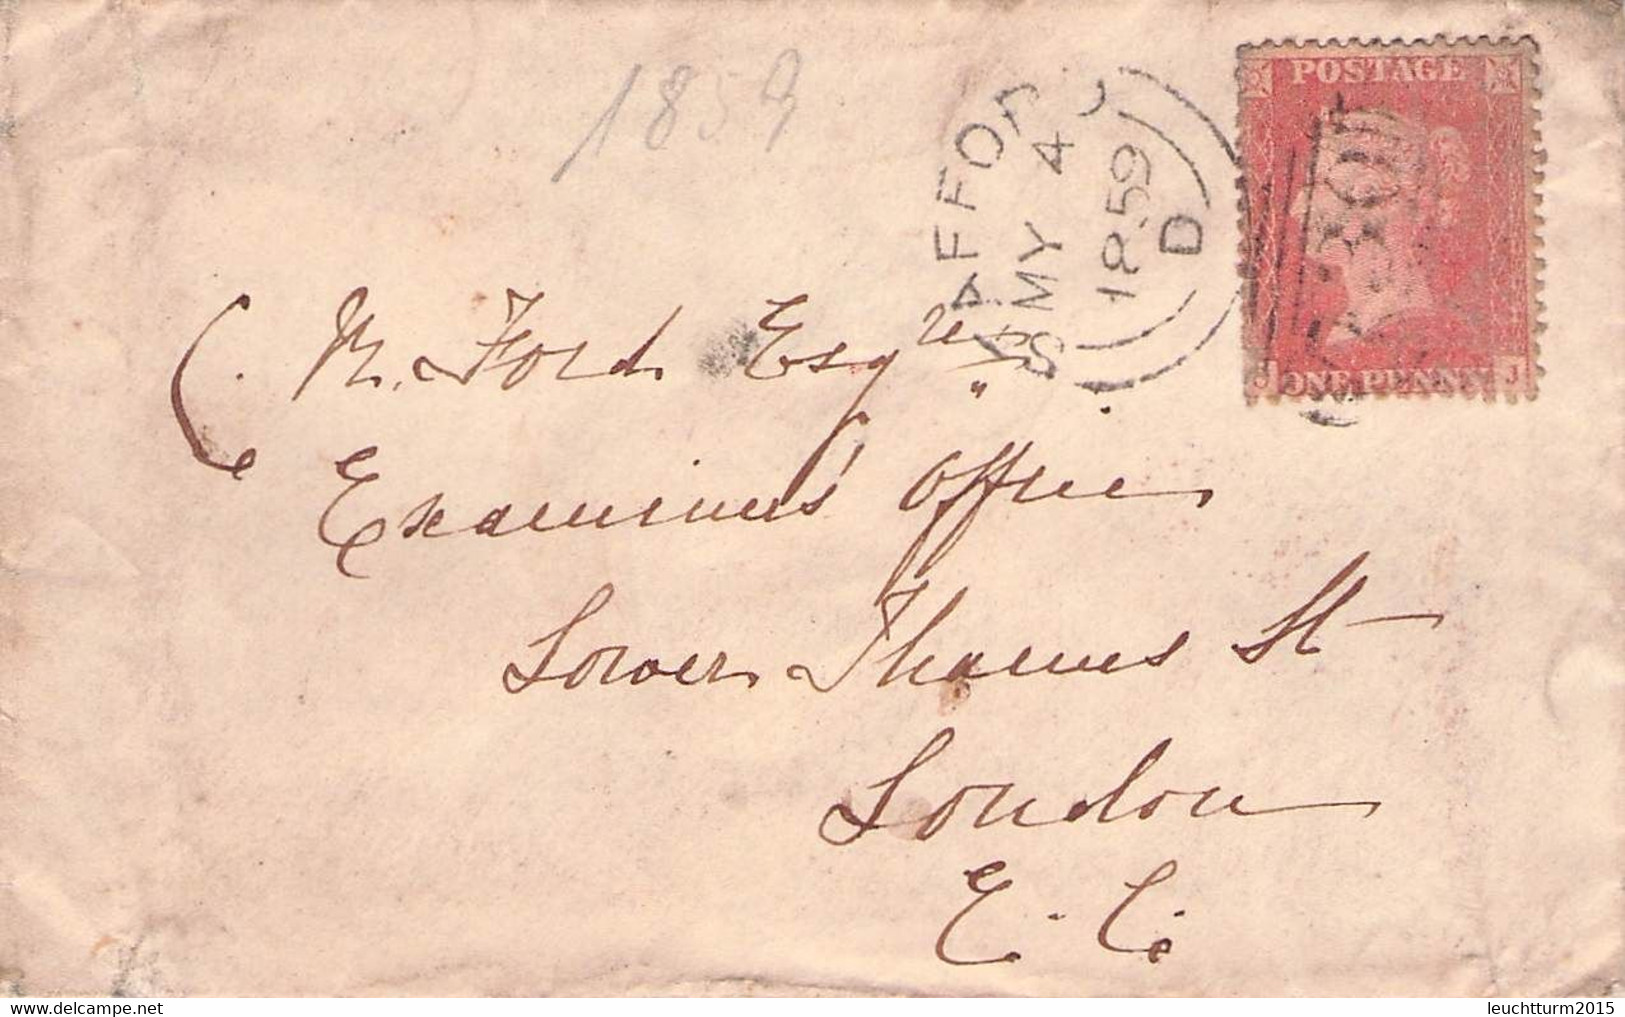 1859
STAFFORD
MY 4
1859
D
POSTAGE
ONE PENNY
J
N. Ford Esqre
Examiners' Office
Lower Thames St
London
E. C.
leuchtturm2015